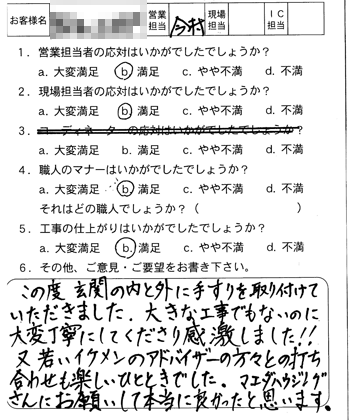 お客様名 営業担当 今村 現場担当 IC担当
1．営業担当者の応対はいかがでしたでしょうか？
a. 大変満足 b. 満足 c. やや不満 d. 不満
2．現場担当者の応対はいかがでしたでしょうか？
a. 大変満足 b. 満足 c. やや不満 d. 不満
3．コーディネーターの応対はいかがでしたでしょうか？
a. 大変満足 b. 満足 c. やや不満 d. 不満
4．職人のマナーはいかがでしたでしょうか？
a. 大変満足 b. 満足 c. やや不満 d. 不満
それはどの職人でしょうか？（ ）
5．工事の仕上がりはいかがでしたでしょうか？
a. 大変満足 b. 満足 c. やや不満 d. 不満
6．その他、ご意見・ご要望をお書き下さい。
この度 玄関の内と外に手すりを取り付けて
いただきました。大きな工事でもないのに
大変丁寧にしてくださり感激しました!!
又 若いイケメンのアドバイザーの方々との打ち
合わせも楽しいひとときでした。マエダハウジング
さんにお願いして本当に良かったと思います。